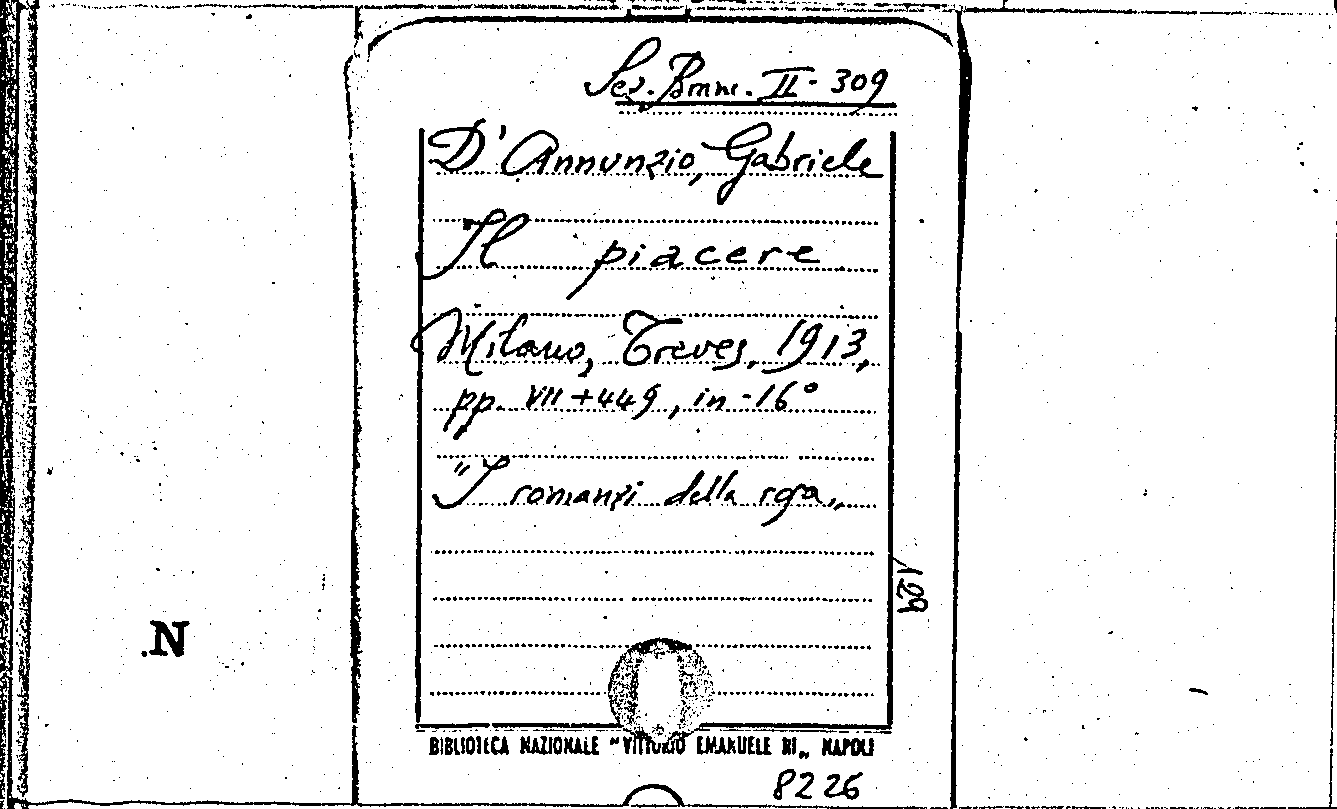 Sez. Bran. II - 309
D'Annunzio, Gabriele
Il piacere
Milano, Treves, 1913,
pp. VII + 449, in - 16°
"I romanzi della rosa„
129
.N
BIBLIOTECA NAZIONALE "VITTORIO EMANUELE III„ NAPOLI
8226